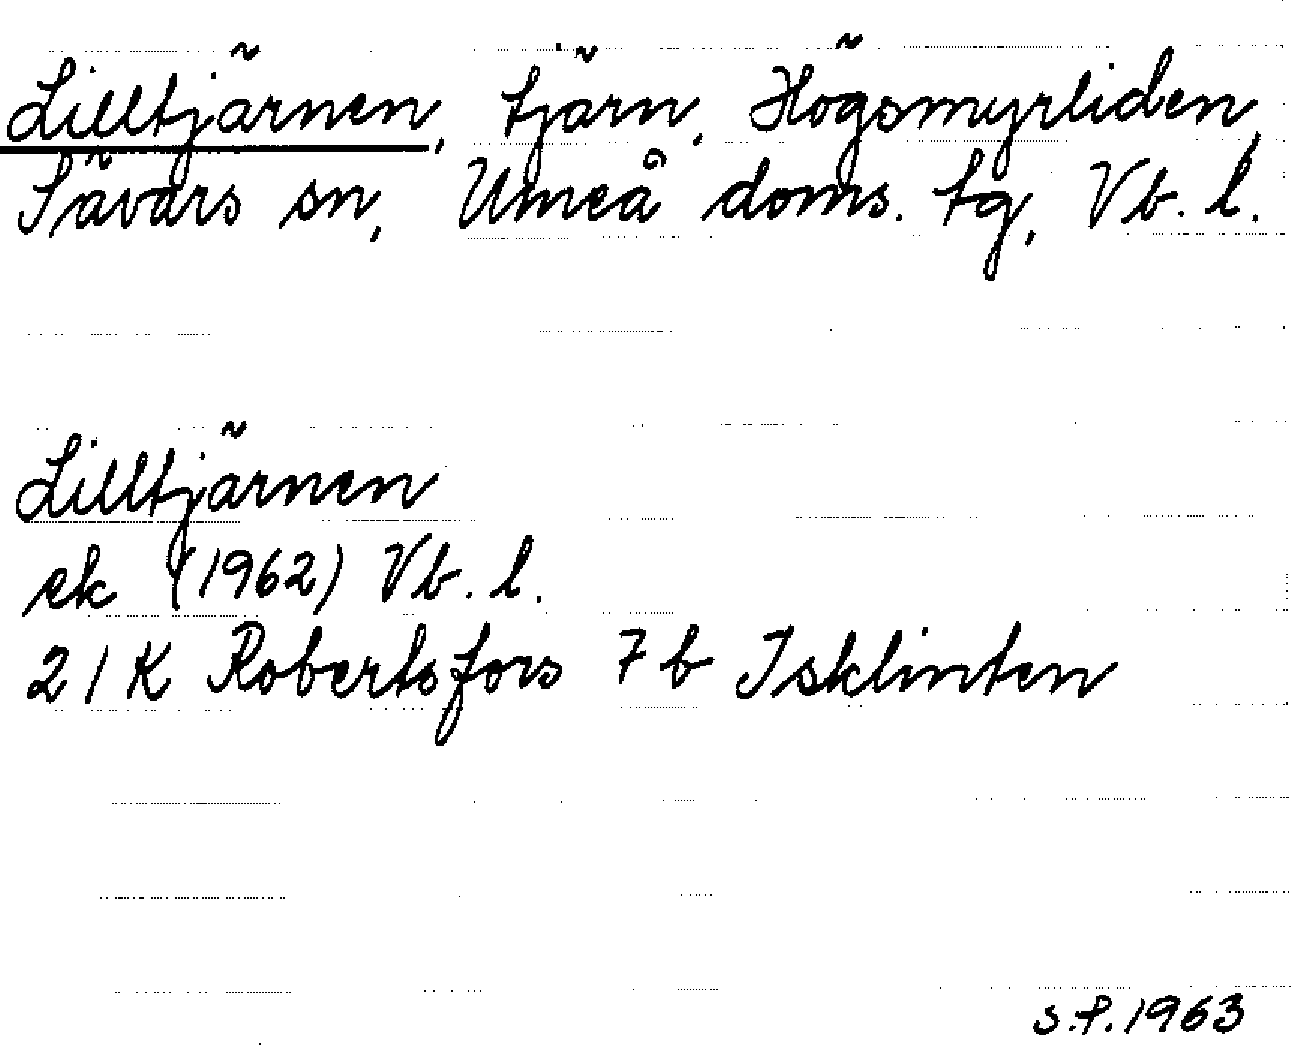 Lilltjärnen, tjärn, Högsmyrliden,
Sävars sn, Umeå doms. tg, Vb. l.
Lilltjärnen
ek (1962) Vb. l.
21K Robertsfors 7b Isklinten
s.f. 1963